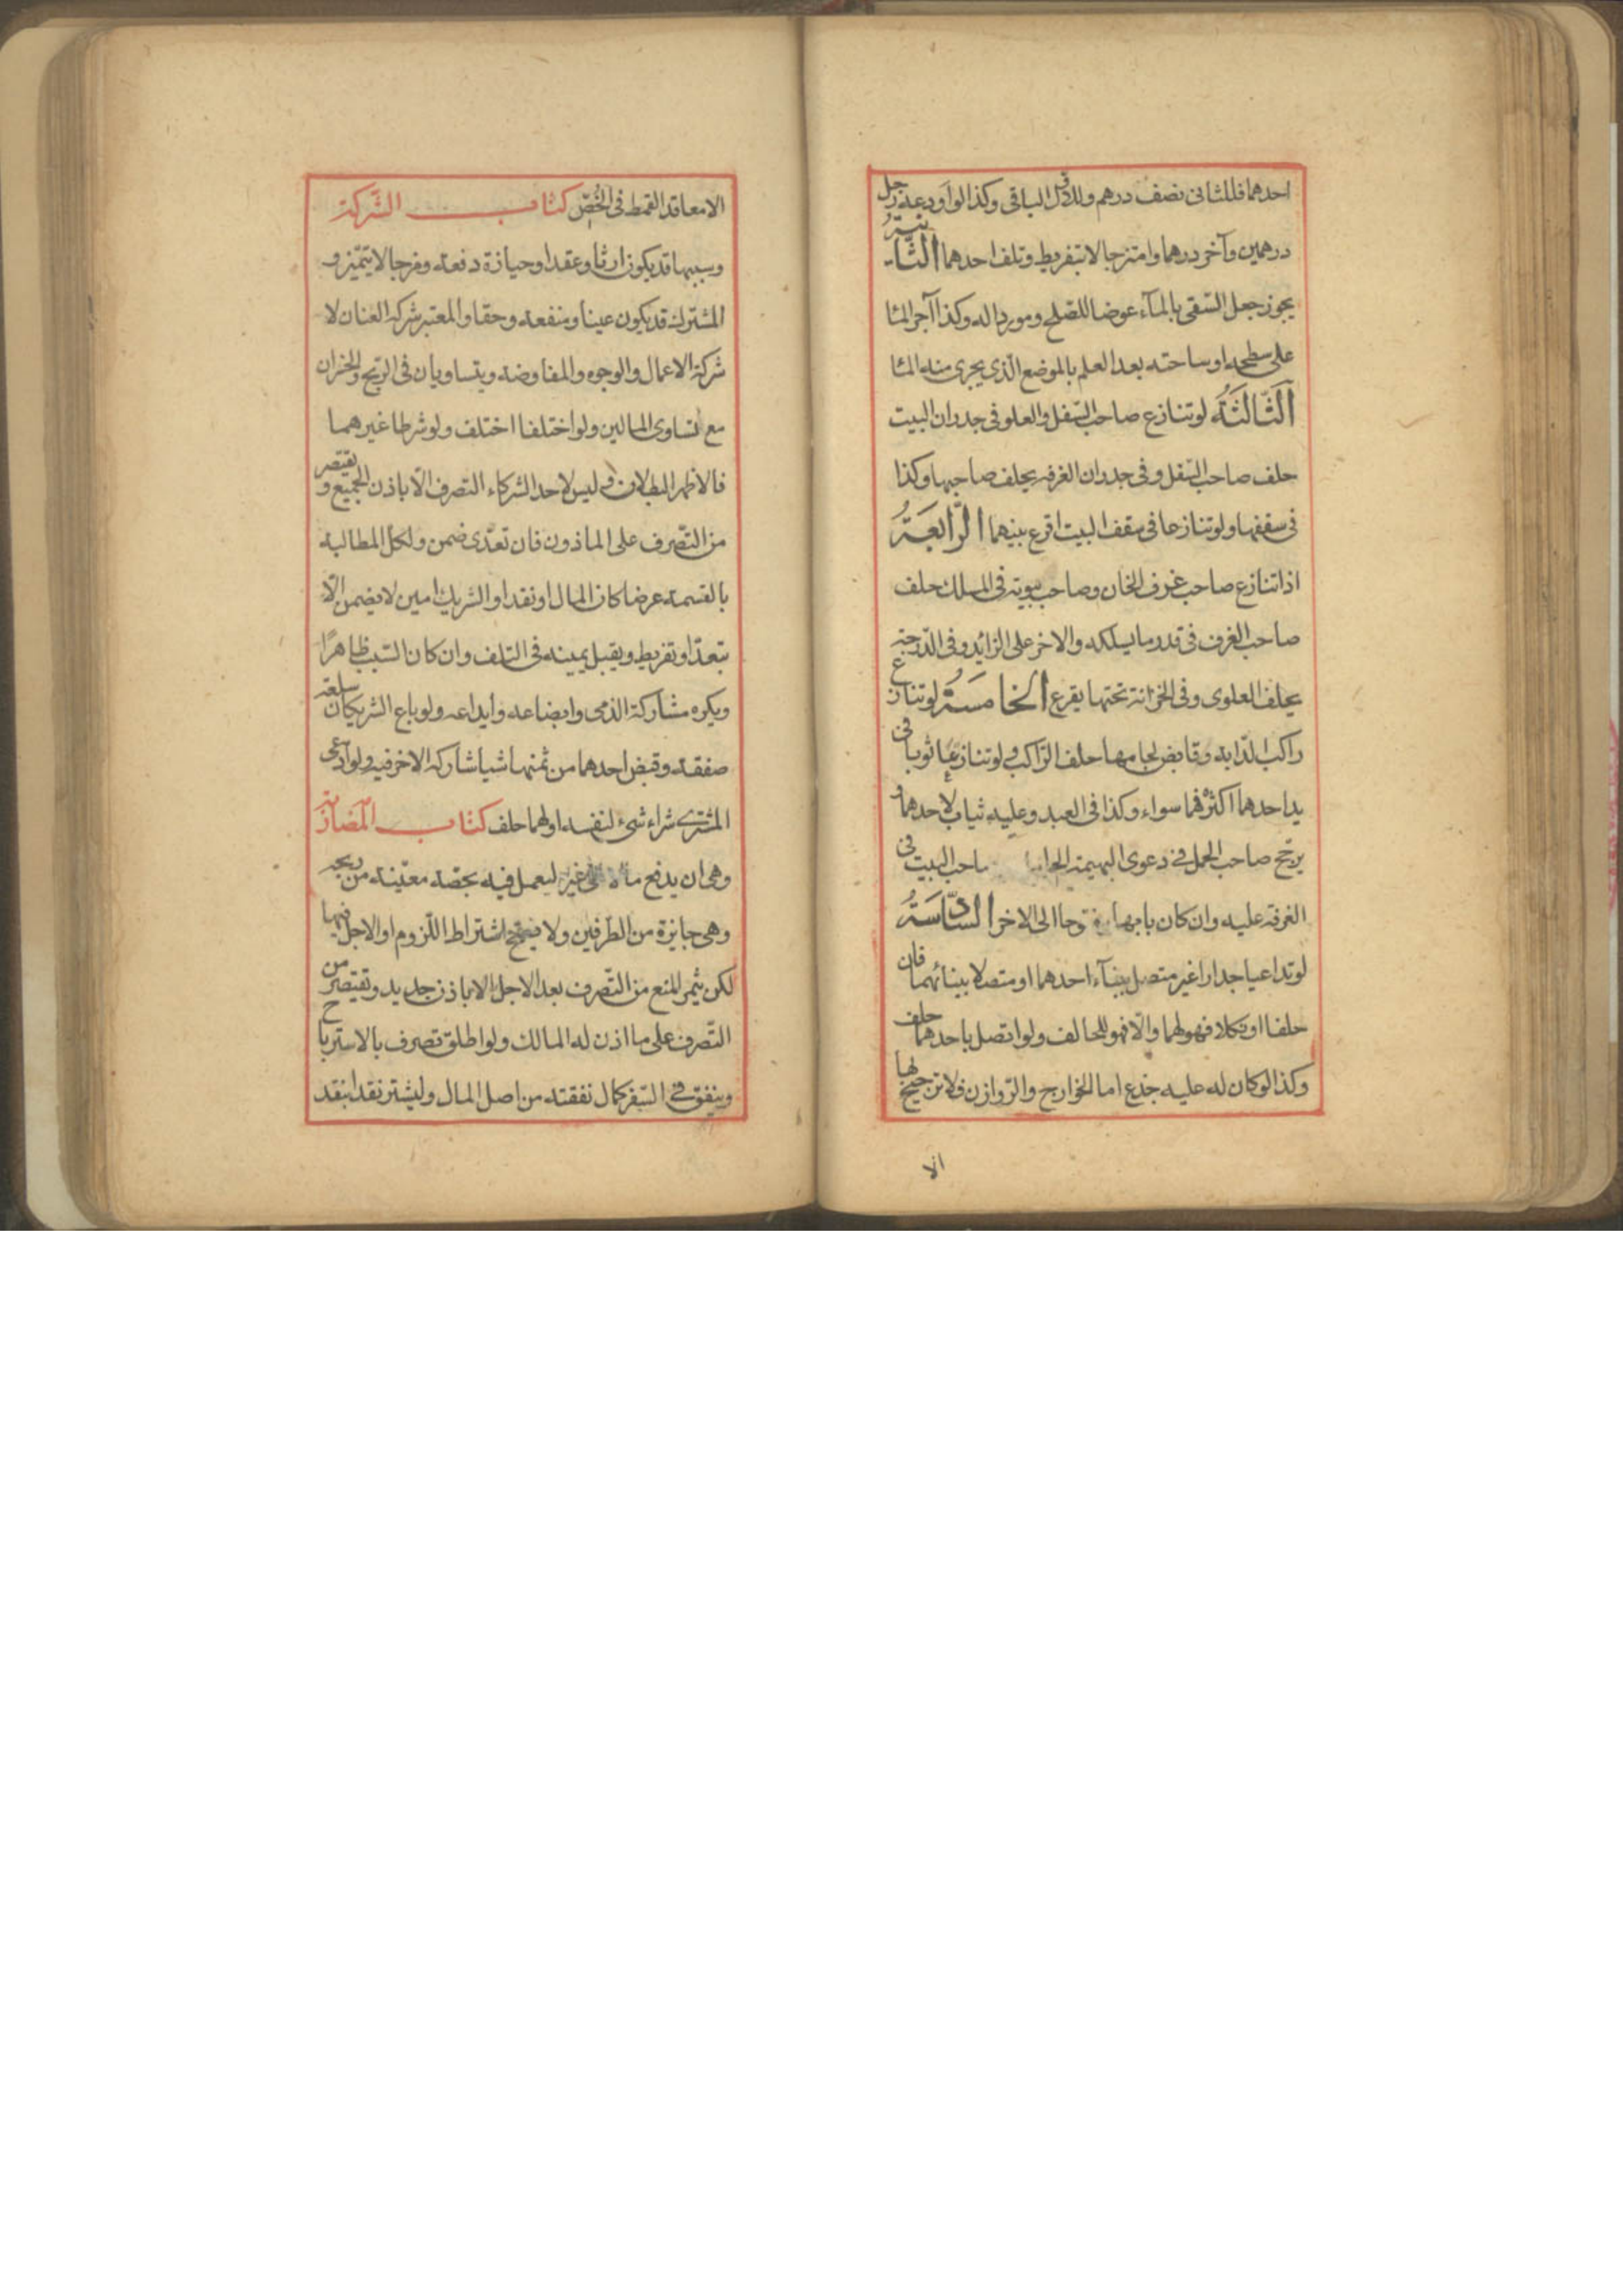 احدهما فللثانى نصف درهم وللاوّل الباقى وكذا لو اودعه رجل
درهمين وآخر درهما وامتزجا لا بتفريط وتلف احدهما الثّانيةُ
يجوز جعل السّقى بالمآء عوضا للصّلح وموردا له وكذا آجر المآء
على سطحه او ساحته بعد العلم بالموضع الّذى يجرى منه المآء
الثّالثةُ لو تنازع صاحب السّفل والعلو فى جدران البيت
حلف صاحب السّفل وفى جدران الغرفه يحلف صاحبها وكذا
فى سقفها ولو تنازعا فى سقف البيت اقرع بينهما الرّابعةُ
اذا تنازع صاحب غرف الخان وصاحب بيوته فى المسلك حلف
صاحب الغرف فى قدر ما يسلكه والاخر على الزائد وفى الدّرجة
يحلف العلوى وفى الخزانة تحتها يقرع الخامسةُ لو تنازع
راكب الدّابه وقابض لجامها حلف الرّاكب ولو تنازعا ثوبا فى
يد احدهما اكثره فهما سواء وكذا فى العبد وعليه ثياب لاحدهما و
يرجّح صاحب الحمل فى دعوى البهيمة الحامل صاحب البيت فى
الغرفة عليه وان كان بابها مفتوحا الى الاخر السّادسةُ
لو تداعيا جدارا غير متصل ببنآء احدهما او متصلا ببنائهما فان
حلفا او نكلا فهو لهما والّا فهو للحالف ولو اتصل باحدهما حلف
وكذا لو كان له عليه جذع اما الخوارج والرّوازن فلا ترجيح لها
الا
الا معاقد القمط فى الخُصّ كتاب الشّركة
وسببها قد يكون ارثا وعقدا وحيازة دفعة ومزجا لا يتميّز و
المشترك قد يكون عينا ومنفعه وحقا والمعتبر شركه العنان لا
شركة الاعمال والوجوه والمفاوضة ويتساويان فى الربح والخسران
مع تساوى المالين ولو اختلفا اختلف ولو شرطا غيرهما
فالاظهر البطلان وليس لاحد الشركاء التصرف الّا باذن الجميع ويقتصر
من التّصرف على الماذون فان تعدّى ضمن ولكل المطالبة
بالقسمة عرضا كان المال او نقدا والشريك امين لا يضمن الّا
بتعدّ او تفريط ويقبل يمينه فى التلف وان كان السّبب ظاهرًا
ويكره مشاركة الذمى وابضاعه وايداعه ولو باع الشريكان سلعة
صفقة وقبض احدهما من ثمنها شيا شاركه الاخر فيه ولو ادّعى
المشترى شراء شىء لنفسه او لهما حلف كتاب المضاربة
وهى ان يدفع مالا الى غيره ليعمل فيه بحصّة معيّنة من ربحه
وهى جايزة من الطّرفين ولا يصحّ اشتراط اللّزوم او الاجل فيها
لكن يثمر المنع من التّصرف بعد الاجل الا باذن جديد ويقتصر من
التّصرف على ما اذن له المالك ولو اطلق تصرف بالاسترباح
وينفق فى السّفر كمال نفقته من اصل المال وليشتر نقدا بنقد